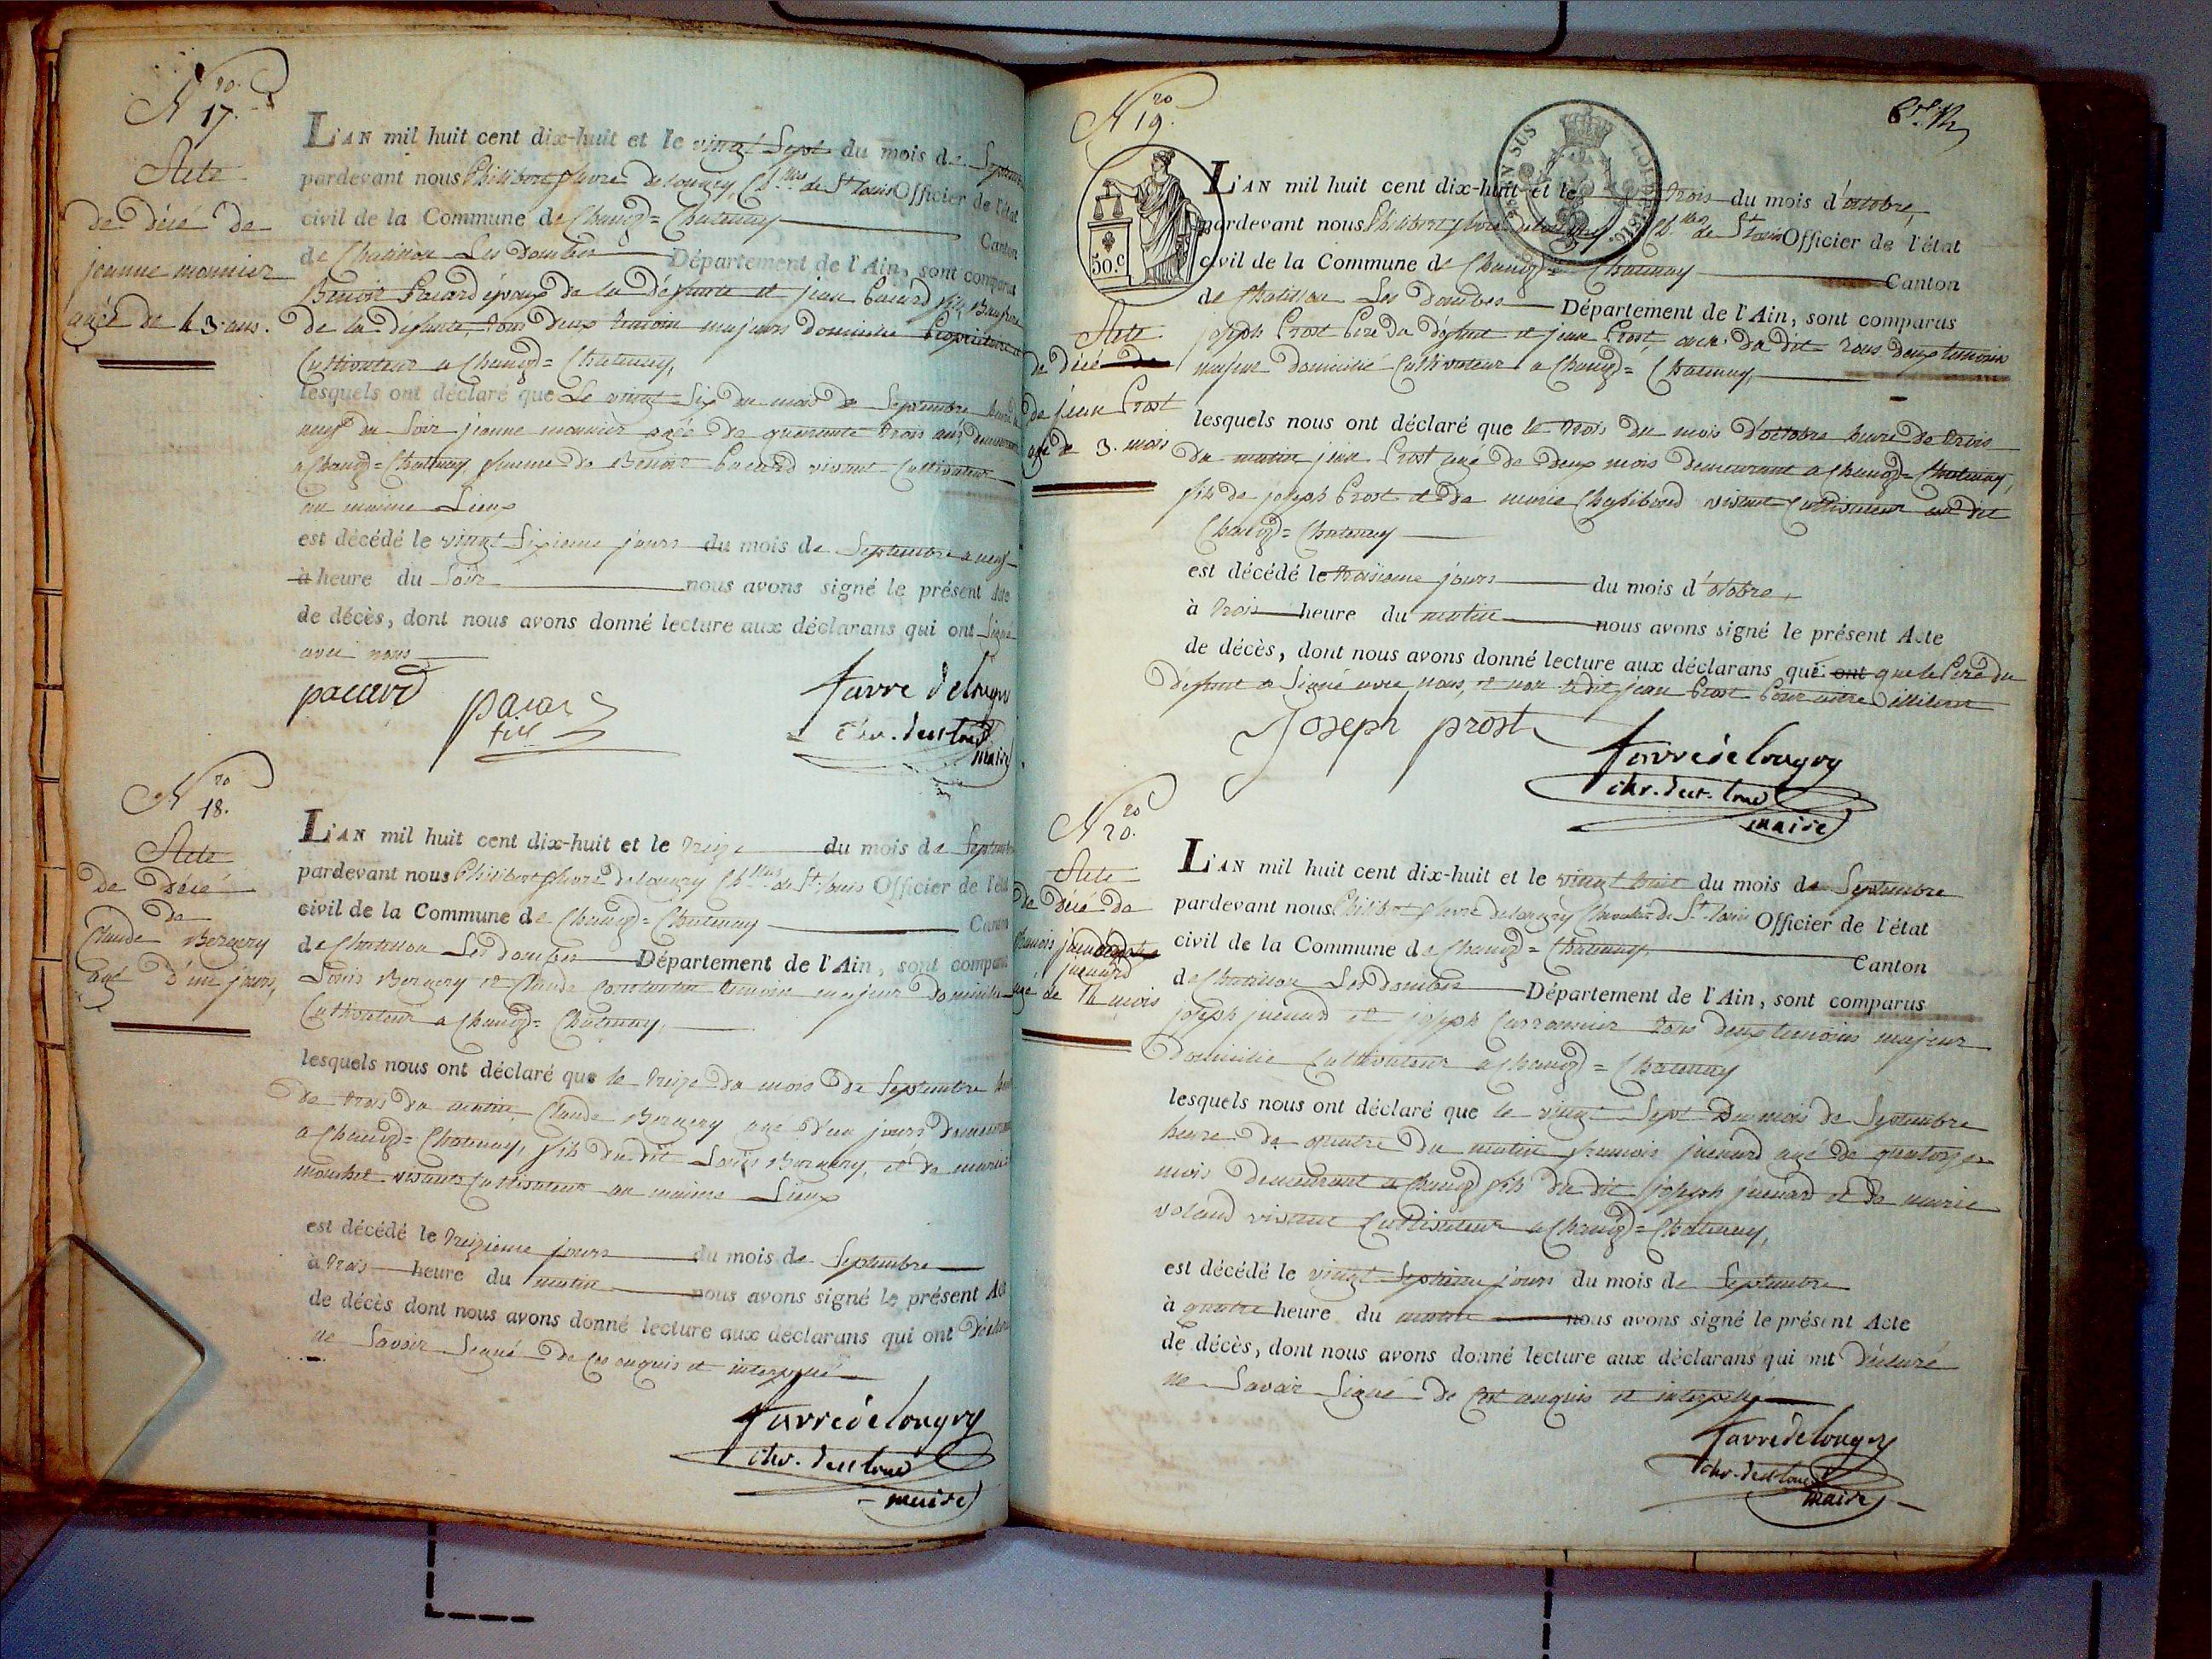 N.ro 17.
Acte
de décé de
jeanne monnier
agée de 43 ans.
L'AN mil huit cent dix-huit et le vingt Sept du mois de Septembre
pardevant nous Philibert favre delongry Ch.lier de St louis Officier de l'état
civil de la Commune de Chaneyd= Chatenay Canton
de Chatillon Les Dombes Département de l'Ain, sont comparus
Benoit Pacard époux de la Defunte et jean Pacard fils
de la defunte, tous deux temoin majeurs domicilié Proprietaire
Cultivateur a Chatenay,
lesquels ont déclaré que Le vingt Six du mois de Septembre heure de
neuf du Soir jeanne monnier agée de quarante trois ans demeurant
a Chatenay femme de Benoit Pacard vivant Cultivateur
au maime Lieux
est décédé le vingt Sixieme jours du mois de Septembre a neuf
à heure du Soir nous avons signé le présent Acte
de décès, dont nous avons donné lecture aux déclarans qui ont Signé
avec nous
pacard
pacar
fils
favre delongry
chr. de st louis
maire
N.ro 18.
Acte
de Décé
de
Claude Bergery
agé d'un jours,
L'AN mil huit cent dix-huit et le treize du mois de Septembre
pardevant nous Philibert favre delongry Ch.lier de St louis Officier de l'état
civil de la Commune de Chatenay Canton
de Chatillon Les Dombes Département de l'Ain, sont comparus
Louis Bergery et Claude temoin majeur domicilié
Cultivateur a Chatenay,
lesquels nous ont déclaré que le treize du mois de Septembre heure
de trois du matin Claude Bergery agé d'un jours demeurant
a Chatenay, fils du dit Louis Bergery, et de marie
mouchet vivants Cultivateur au maime Lieux
est décédé le treizieme jours du mois de Septembre
à trois heure du matin nous avons signé le présent Acte
de décès dont nous avons donné lecture aux déclarans qui ont Déclaré
ne Savoir Signé de Ce enquis et interpellé
favre delongry
chr. de st louis
maire
N.ro 19.
50.c
Acte
de décé de
de jean Prost
agé de 3. mois
L'AN mil huit cent dix-huit et le trois du mois d'octobre,
pardevant nous Philibert favre delongry Ch.lier de St louis Officier de l'état
civil de la Commune de Chatenay Canton
de Chatillon Les Dombes Département de l'Ain, sont comparus
joseph Prost Pere du défunt et jean Prost, du dit tous deux temoin
majeur domicilié Cultivateur a Chatenay,
lesquels nous ont déclaré que le trois du mois d'octobre heure de trois
du matin jean Prost agé de deux mois demeurant a Chatenay,
fils de joseph Prost et de marie vivant Cultivateur au dit
Chatenay
est décédé le troisieme jours du mois d'otobre,
à trois heure du matin nous avons signé le présent Acte
de décès, dont nous avons donné lecture aux déclarans qui ont que le Pere du
défunt a Signé avec nous, et non le dit jean Prost Pour être illiteré
Joseph prost
favre delongry
chr. de st. louis
maire
N.ro 20.
Acte
de Décé de
francois
juenard
agé de 14 mois
L'AN mil huit cent dix-huit et le vingt huit du mois de Septembre
pardevant nous Philibert favre delongry Chevalier de St. louis Officier de l'état
civil de la Commune de Chatenay Canton
de Chatillon Les Dombes Département de l'Ain, sont comparus
joseph juenard et joseph tous deux temoins majeur
Domicilié Cultivateur a Chatenay
lesquels nous ont déclaré que le vingt Sept Du mois de Septembre
heure de quatre du matin francois juenard agé de quatorze
mois demeurant a fils du dit joseph juenard et de marie
voland vivant Cultivateur a Chatenay,
est décédé le vingt Septieme jours du mois de Septembre
à quatre heure du matin nous avons signé le présent Acte
de décès, dont nous avons donné lecture aux déclarans qui ont Déclaré
ne Savoir Signé de Cet enquis et interpellé
favre delongry
chr. de st louis
maire